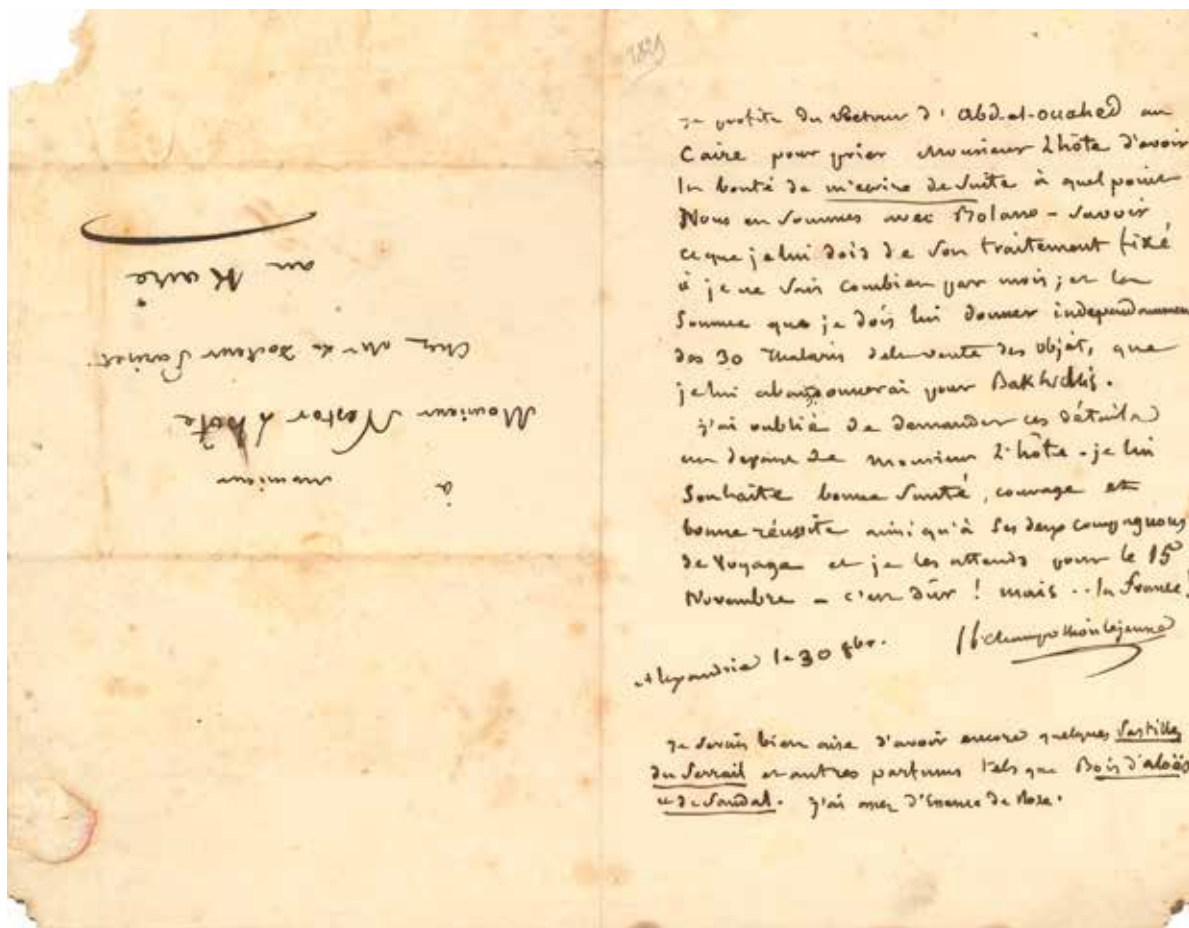 1829
Je profite du retour d'Abd-el-ouahed au
Caire pour prier Monsieur Lhôte d'avoir
la bonté de m'écrire de suite à quel point
Nous en sommes avec Rolano - savoir
ce que je lui dois de son traitement fixé
à je ne sais combien par mois; et la
Somme que je dois lui donner independamment
des 30 Thalaris de la vente des objet, que
je lui abandonnerai pour
j'ai oublié de demander ces détails
au depart de monsieur L'hôte - je lui
Souhaite bonne Santé, courage et
bonne réussite ainsi qu'à ses deux compagnons
de Voyage et je les attends pour le 15
Novembre - c'est dûr ! mais .. la france !
Alexandrie le 30 8bre. J.f. Champollion le jeune
Je serais bien aise d'avoir encore quelques Pastilles
du Serrail et autres parfums tels que Bois d'aloës
et de Sandal. j'ai assez d'Essence de Rose.
à
monsieur
Monsieur Nestor Lhote
chez Mr le Docteur Pariset
au Kaire